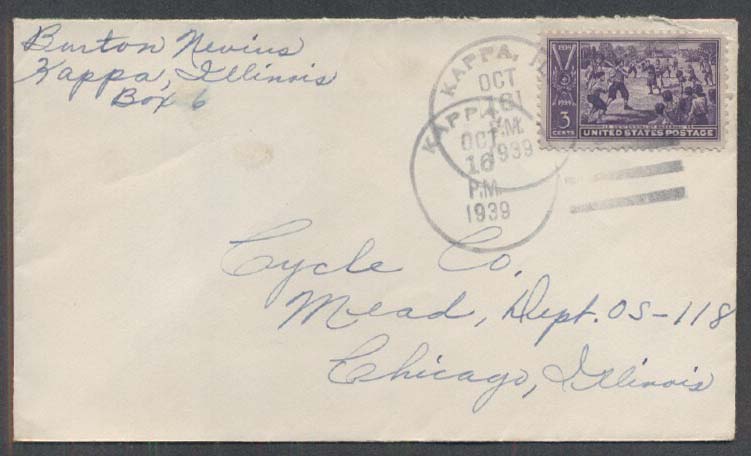 Burton Nevius
Kappa, Illinois
Box 6
KAPPA, IL
OCT
16
P.M.
1939
KAPPA,
OCT
16
P.M.
1939
1839
1939
3
CENTS
UNITED STATES POSTAGE
Cycle Co.
Mead, Dept. OS-118
Chicago, Illinois